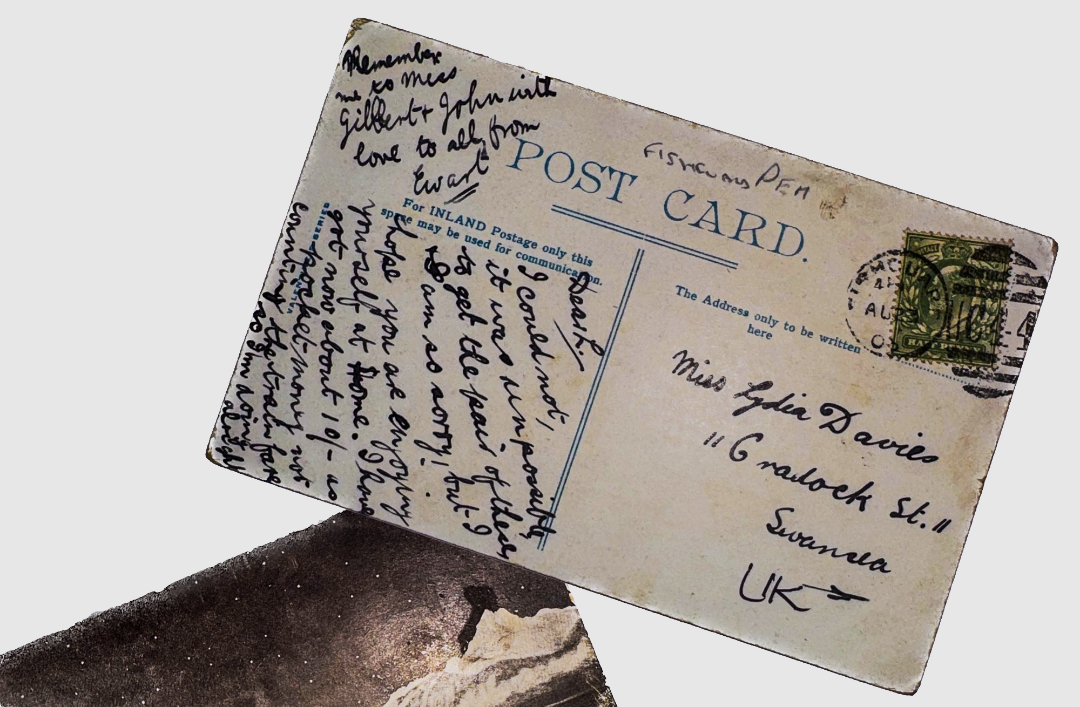 Remember
me to Miss
Gilbert + John with
love to all from
Ewart
POST CARD.
For INLAND Postage only this
space may be used for communication.
The Address only to be written
here
Dear L.
I could not,
it was impossible
to get the pair of these,
I am so sorry, but I
hope you are enjoying
yourself at Home. I have
got now about 10/- as
pocket money not
counting the train fare
so I'm doing
alright
Miss Lydia Davies
"Cradock St."
Swansea
UK
HALFPENNY